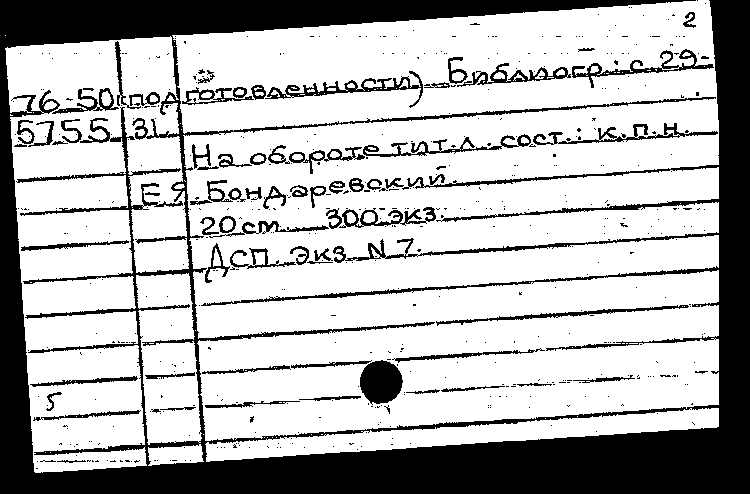 2
76-50 (подготовленности) Библиогр.: с. 29-
5755 31.
На обороте тит. л. сост.: к.п.н.
Е.Я. Бондаревский.
20 cm 300 экз.
ДСП. Экз N 7.
5